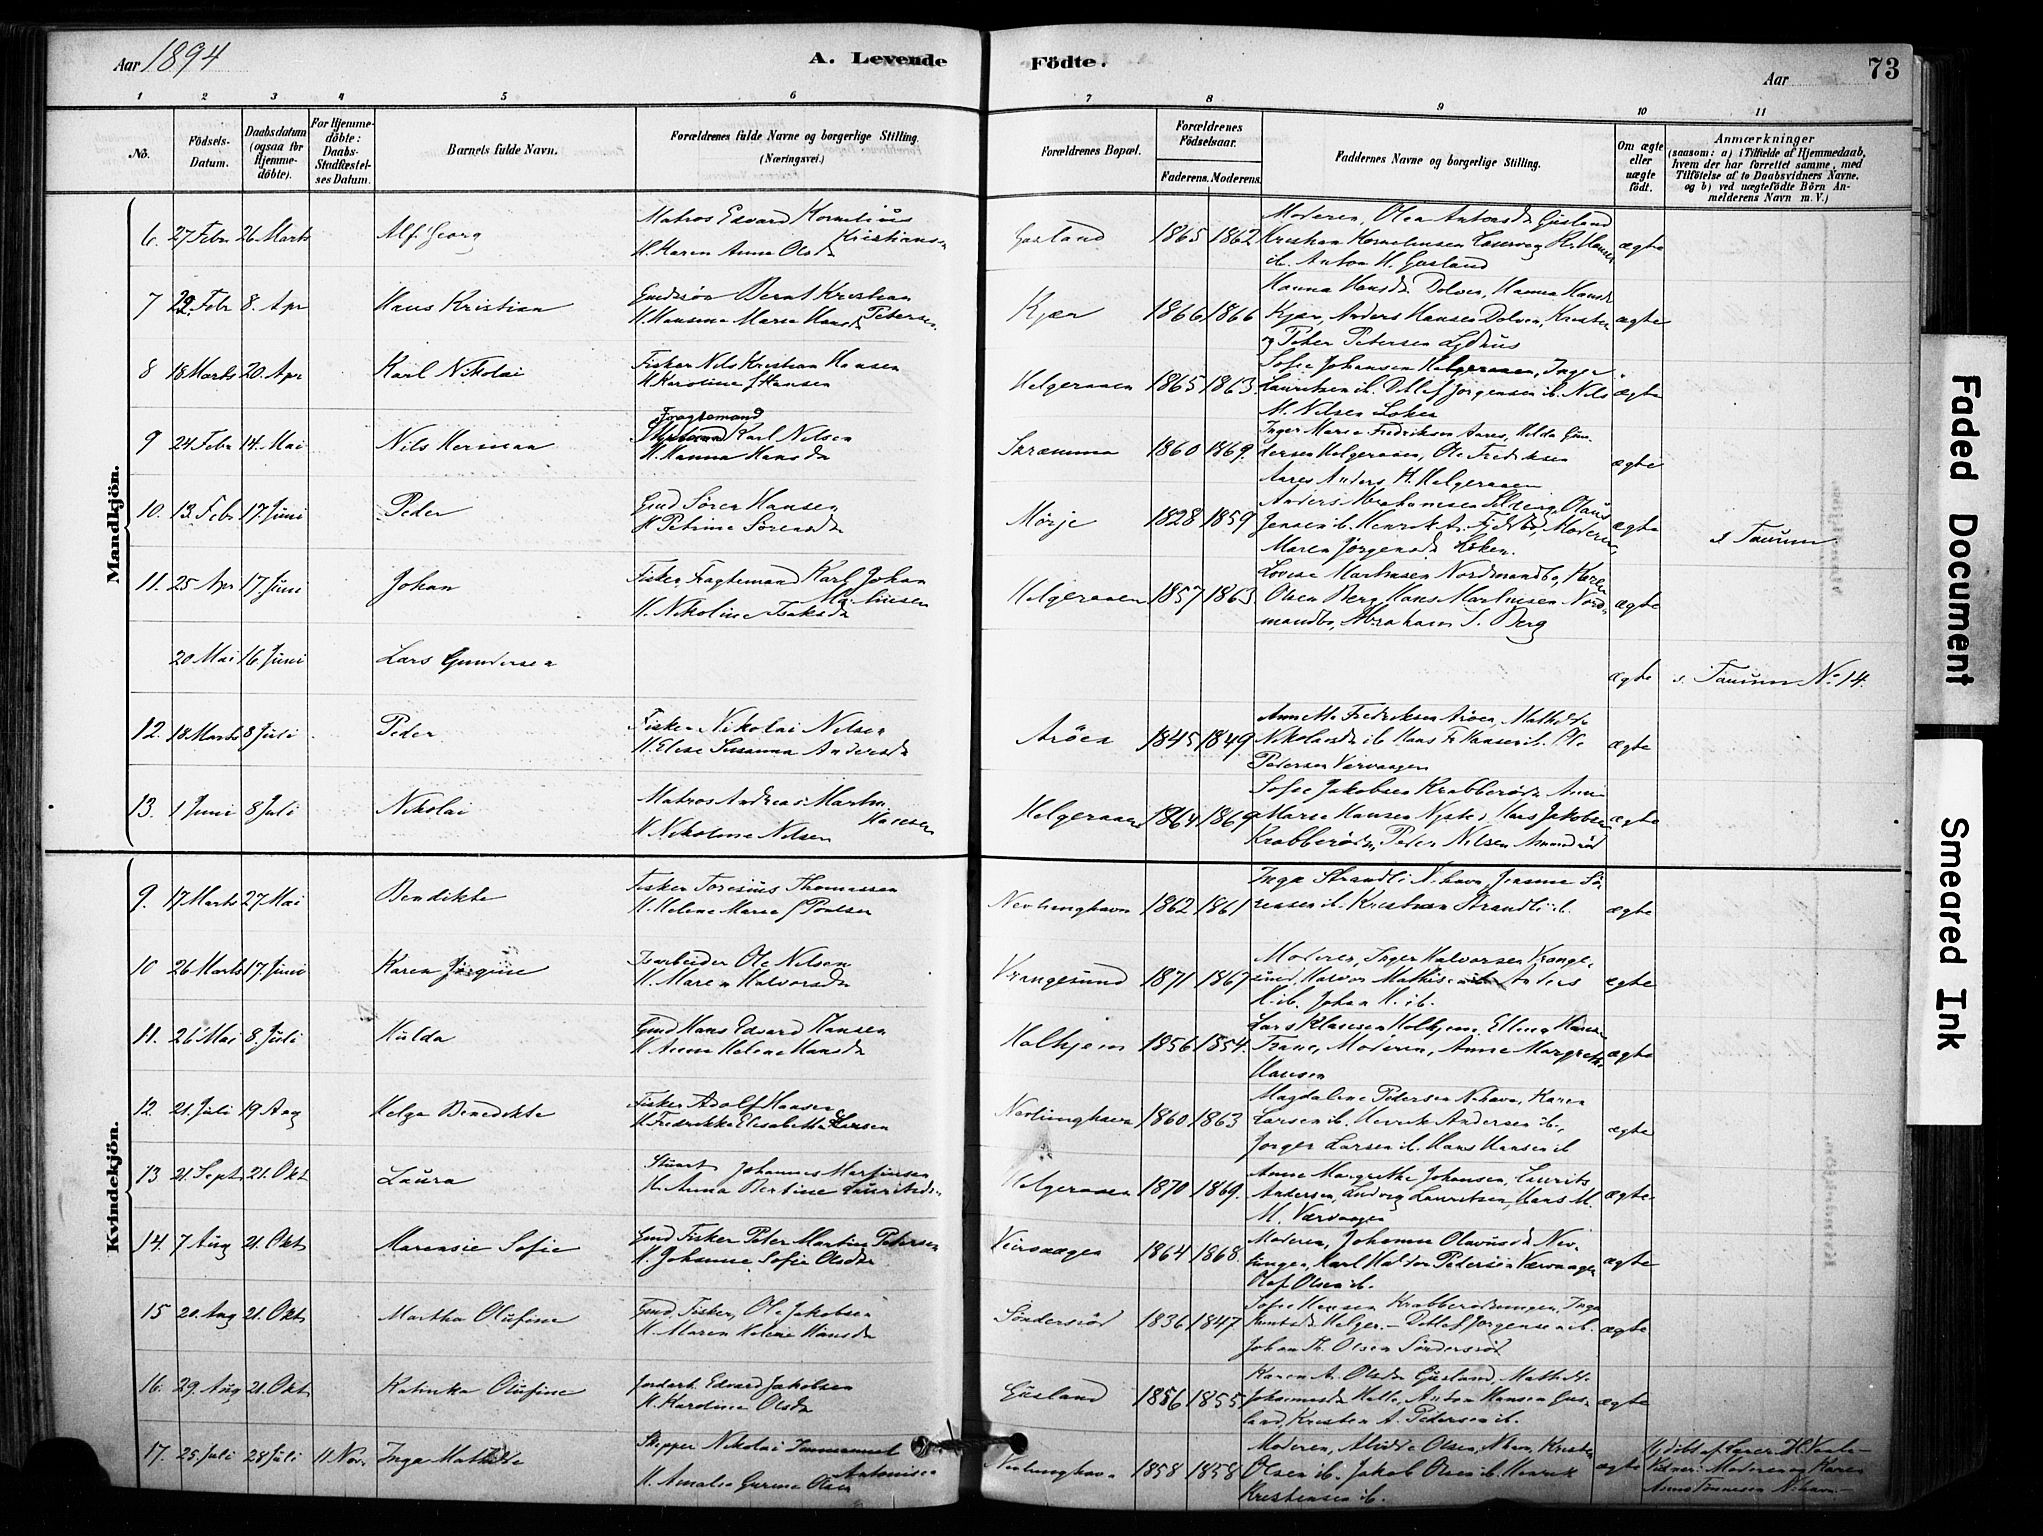 Aar 1894
A. Levende Födte.
Aar
73
1 2 3 4 5 6 7 8 9 10 11
No. Födsels-Datum. Daabsdatum (ogsaa for Hjemme-döbte). For Hjemme-döbte: Daabs-Stadfæstel-ses Datum. Barnets fulde Navn. Forældrenes fulde Navne og borgerlige Stilling. (Næringsvei.) Forældrenes Bopæl. Forældrenes Födselsaar. Faderens. Moderens. Faddernes Navne og borgerlige Stilling. Om ægte eller uægte födt. Anmærkninger (saasom: a) i Tilfælde af Hjemmedaab, hvem der har forrettet samme, med Tilföielse af to Daabsvidners Navne. og b) ved uægtefödte Börn An-melderens Navn m. V.)
Mandkjön.
6 27 Febr 26 Marts Alf Georg Matros Edvard Kornelius Kristiansen
H. Karen Anna Olsdr Gusland 1865 1862 Moderen, Olea Antonsdr Gusland
Kristian Kornelius­en
ib. Anton H. Gusland ægte
7 22 Febr 8. Apr Hans Kristian Gaardssøn Bernt Kristian Petersen
H. Hansena Marie Hansdr Kjær 1866 1866 Hanna Hansdr Dolven, Hanna Hansdr
Kjær, Anders Hansen Dolven, Kristen
og Peter Petersen ægte
8 18 Marts 20. Apr Karl Nikolai Fisker Nils Kristian Hansen
H. Karoline J Hansen Helgeraaen 1865 1863 Sofie Johansen Helgeraaen, Inger
Lauritsen ib. Detlef Jørgensen ib. Nils
M. Nilsen ægte
9 24 Febr 14. Mai Nils Herman Fragtemand Karl Nilsen
H. Hanna Hansdr 1860 1869. Inger Marie Fredriksen Aares, Helda Gun-
dersen Helgeraaen, Ole Fredriksen
Aares Anders H. Helgeraaen ægte
10. 13. Febr 17. Juni Peder Gmd Sören Hansen
H Petrine Sörensdr Mörje 1828 1859 Anders Abrahamsen Olaus
Jensen ib. Henrik A. Moderen,
Maren Jørgensdr ægte s Taurum
11. 25 Apr 17. Juni Johan Fisker Fragtemand Karl Johan Martinsen
H. Nikoline Isaksdr Helgeraaen 1857 1863 Lovise Martinsen Nordmandbo, Karen
Olsen Berg Hans Martinsen Nord-
mandbo, Abraham S. Berg ægte
20 Mai 16 Juni Lars Gundersen ægte s. Taurum No 14.
12. 18. Marts 8 Juli Peder Fisker Nikolai Nilsen
H. Elise Susanna Andersdr Aröen 1845 1849 Annette Fredriksen Aröen, Mathilde
Nikolaisdr ib. Hans Fr Hansen ib. Ole
Pedersen Værvaagen ægte
13. 1 Juni 8 Juli Nikolai Matros Andreas Martin Hansen
H. Nikoline Nilsen Helgeraaen 1864 1869 Sofie Jakobsen Krabberödn Anne
Marie Hansen Hans Jakobsen
Krabberödn, Peder Nilsen ægte
Kvindekjön.
9. 17 Marts 27 Mai Bendikte Fisker Toresius Thomassen
H. Helene Marie J Poulsen Nevlunghavn 1862 1861 Inga Strandli N.havn, Jensine Sö-
rensen ib. Kristian Strandli ib. ægte
10 26 Marts 17. Juni Karen Jörgine Isarbeider Ole Nilsen
H. Maren Halvorsdr Vrangesund 1871 1867 Moderen, Inger Halvorsen Vrange-
sund, Halvor Mathisen ib Anders
H. ib. Johan H. ib. ægte
11. 26 Mai 8. Juli Hulda Gmd Hans Edvard Hansen
H Anna Helene Hansdr Holhjem 1856 1854. Lars Klausen Holhjem, Elling Hansen
Moderen, Anne Margrethe
Hansen ægte
12. 21. Juli 19 Aug Helga Benedikte Fisker Adolf Hansen
H Fredrikke Elisabeth Larsen Nevlunghavn 1860 1863 Magdalene Pedersen N.havn, Karen
Larsen ib. Henrik Andersen ib.,
Jørgen Larsen ib. Hans Hansen ib ægte
13 21. Sept 21. Okt Laura Stuert Johannes Martinsen
H. Anna Bertine Lauritsdr Helgeraaen 1870 1869. Anne Margrethe Johansen, Laurits
Andersen, Ludvig Lauritsen, Hans M.
M. Værvaagen ægte
14. 7 Aug 21. Okt Marensie Sofie Gmd Fisker Peter Martin Petersen
H. Johanne Sofie Olsdr Værvaagen 1864 1868. Moderen, Johanne Olavusdr Nev-
lungen, Karl Haldor Pedersen Værvaagen
Olaf Olsen ib. ægte
15 20. Aug 21. Okt Martha Olufine Gmd Fisker, Ole Jakobsen
H. Maren Helene Hansdr Söndersröd 1836 1847 Sofie Hansen Inga
Helger.– Detlef Jørgensen ib.
Johan Th. Olsen Söndersröd ægte
16. 29. Aug 21. Okt Katinka Olufine Jordarb. Edvard Jakobsen
H. Karoline Olsdr Gusland 1856 1855 Karen A. Olsdr Gusland, Mathilde
Anton Hansen Gus-
land, Kristen A. Pedersen ib. ægte
17. 25. Juli 28 Juli 11 Nov. Inga Mathilde Skipper Nikolai Immanuel Antonisen
H. Amalie Gurine Olsen Nevlunghavn 1858 1858 Moderen, Alvilde Olsen, Nhvn, Kristen
Olsen ib. Jakob Olsen ib. Henrik
Kristensen ib. ægte Hjdöbt af
Vidner: Moderen og Karen
N.havn.–
Faded Document
Smeared Ink